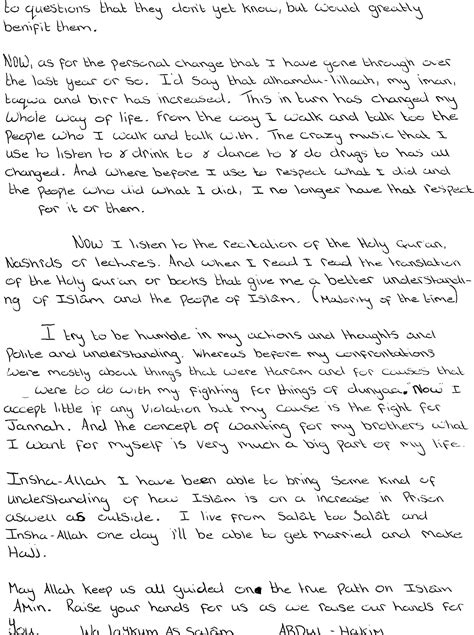 to questions that they don't yet know, but would greatly
benifit them.
NOW, as for the personal change that I have gone through over
the last year or so. I'd say that alhamdu-lillaah, my iman,
taqwa and birr has increased. This in turn has changed my
whole way of life. From the way I walk and talk too the
People who I walk and talk with. The crazy music that I
use to listen to & drink to & dance to & do drugs to has all
changed. And where before I use to respect what I did and
the people who did what I did, I no longer have that respect
for it or them.
Now I listen to the recitation of the Holy Qur'an,
Nashids or lectures. And when I read I read the translation
of the Holy Qur'an or books that give me a better understandi-
ng of Islâm and the people of Islâm. (Majority of the time)
I try to be humble in my actions and thoughts and
Polite and understanding. Whereas before my confrontations
were mostly about things that were Harâm and for causes that
were to do with my fighting for things of dunyaa. Now I
accept little if any violation but my cause is the fight for
Jannah. And the concept of wanting for my brothers what
I want for myself is very much a big part of my life.
Insha-Allah I have been able to bring some kind of
understanding of how Islâm is on a increase in Prison
aswell as outside. I live from Salât too Salât and
Insha-Allah one day i'll be able to get married and make
Hajj.
May Allah keep us all guided on the true path on Islâm
Amin. Raise your hands for us as we raise our hands for
you. Wa laykum As Salâm ABDUL - Hakim